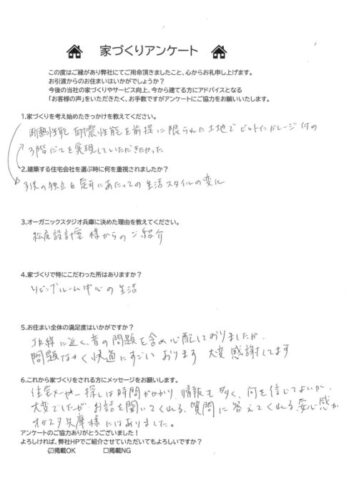 家づくりアンケート
この度はご縁があり弊社にてご用命頂きましたこと、心からお礼申し上げます。
お引渡からのお住まいはいかがでしょうか?
今後の当社の家づくりやサービス向上、今から建てる方にアドバイスとなる
「お客様の声」をいただきたく、お手数ですがアンケートにご協力をお願いいたします。
1.家づくりを考え始めたきっかけを教えてください。
断熱性能 耐震性能を前提に限られた土地でビルトインガレージ付の
3階だてを実現していただきたかった
2.建築する住宅会社を選ぶ時に何を重視されましたか?
子供の独立も にあたっての生活スタイルの変化
3.オーガニックスタジオ兵庫に決めた理由を教えてください。
松尾設計室 様からのご紹介
4.家づくりで特にこだわった所はありますか?
リビングルーム中心の生活
5.お住まい全体の満足度はいかがですか?
に近く、音の問題を含め心配しておりましたが、
問題なく快適にすごしております 大変感謝してます
6.これから家づくりをされる方にメッセージをお願いします。
住宅メーカー探しは時間かかり 情報も多く、何を信じてよいか、
大変でしたが お話を聞いてくれる、質問に答えてくれる安心感が
オガスタ兵庫様にはありました。
アンケートのご協力ありがとうございました!
よろしければ、弊社HPでご紹介させていただいてもよろしいですか?
☑掲載OK □掲載NG